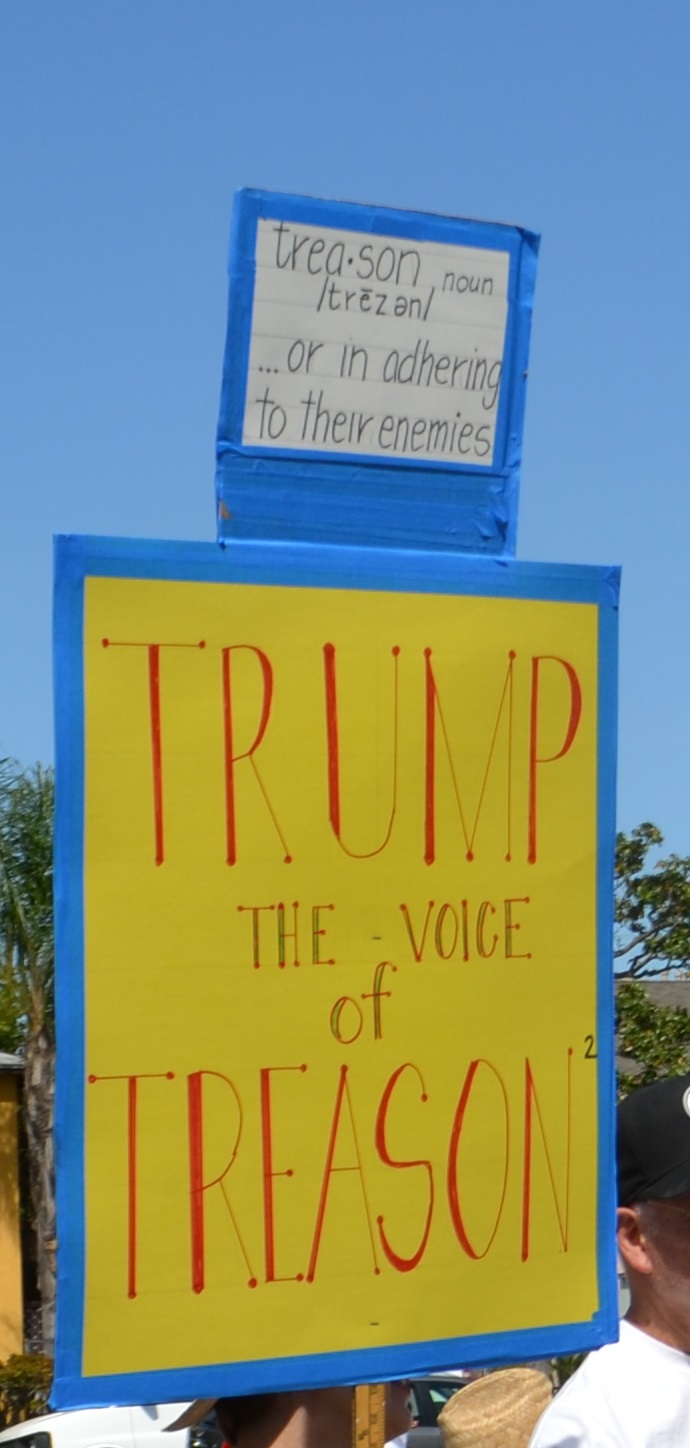 trea·son, noun
/trēzən/
...or in adhering
to their enemies
TRUMP
THE - VOICE
of
TREASON²